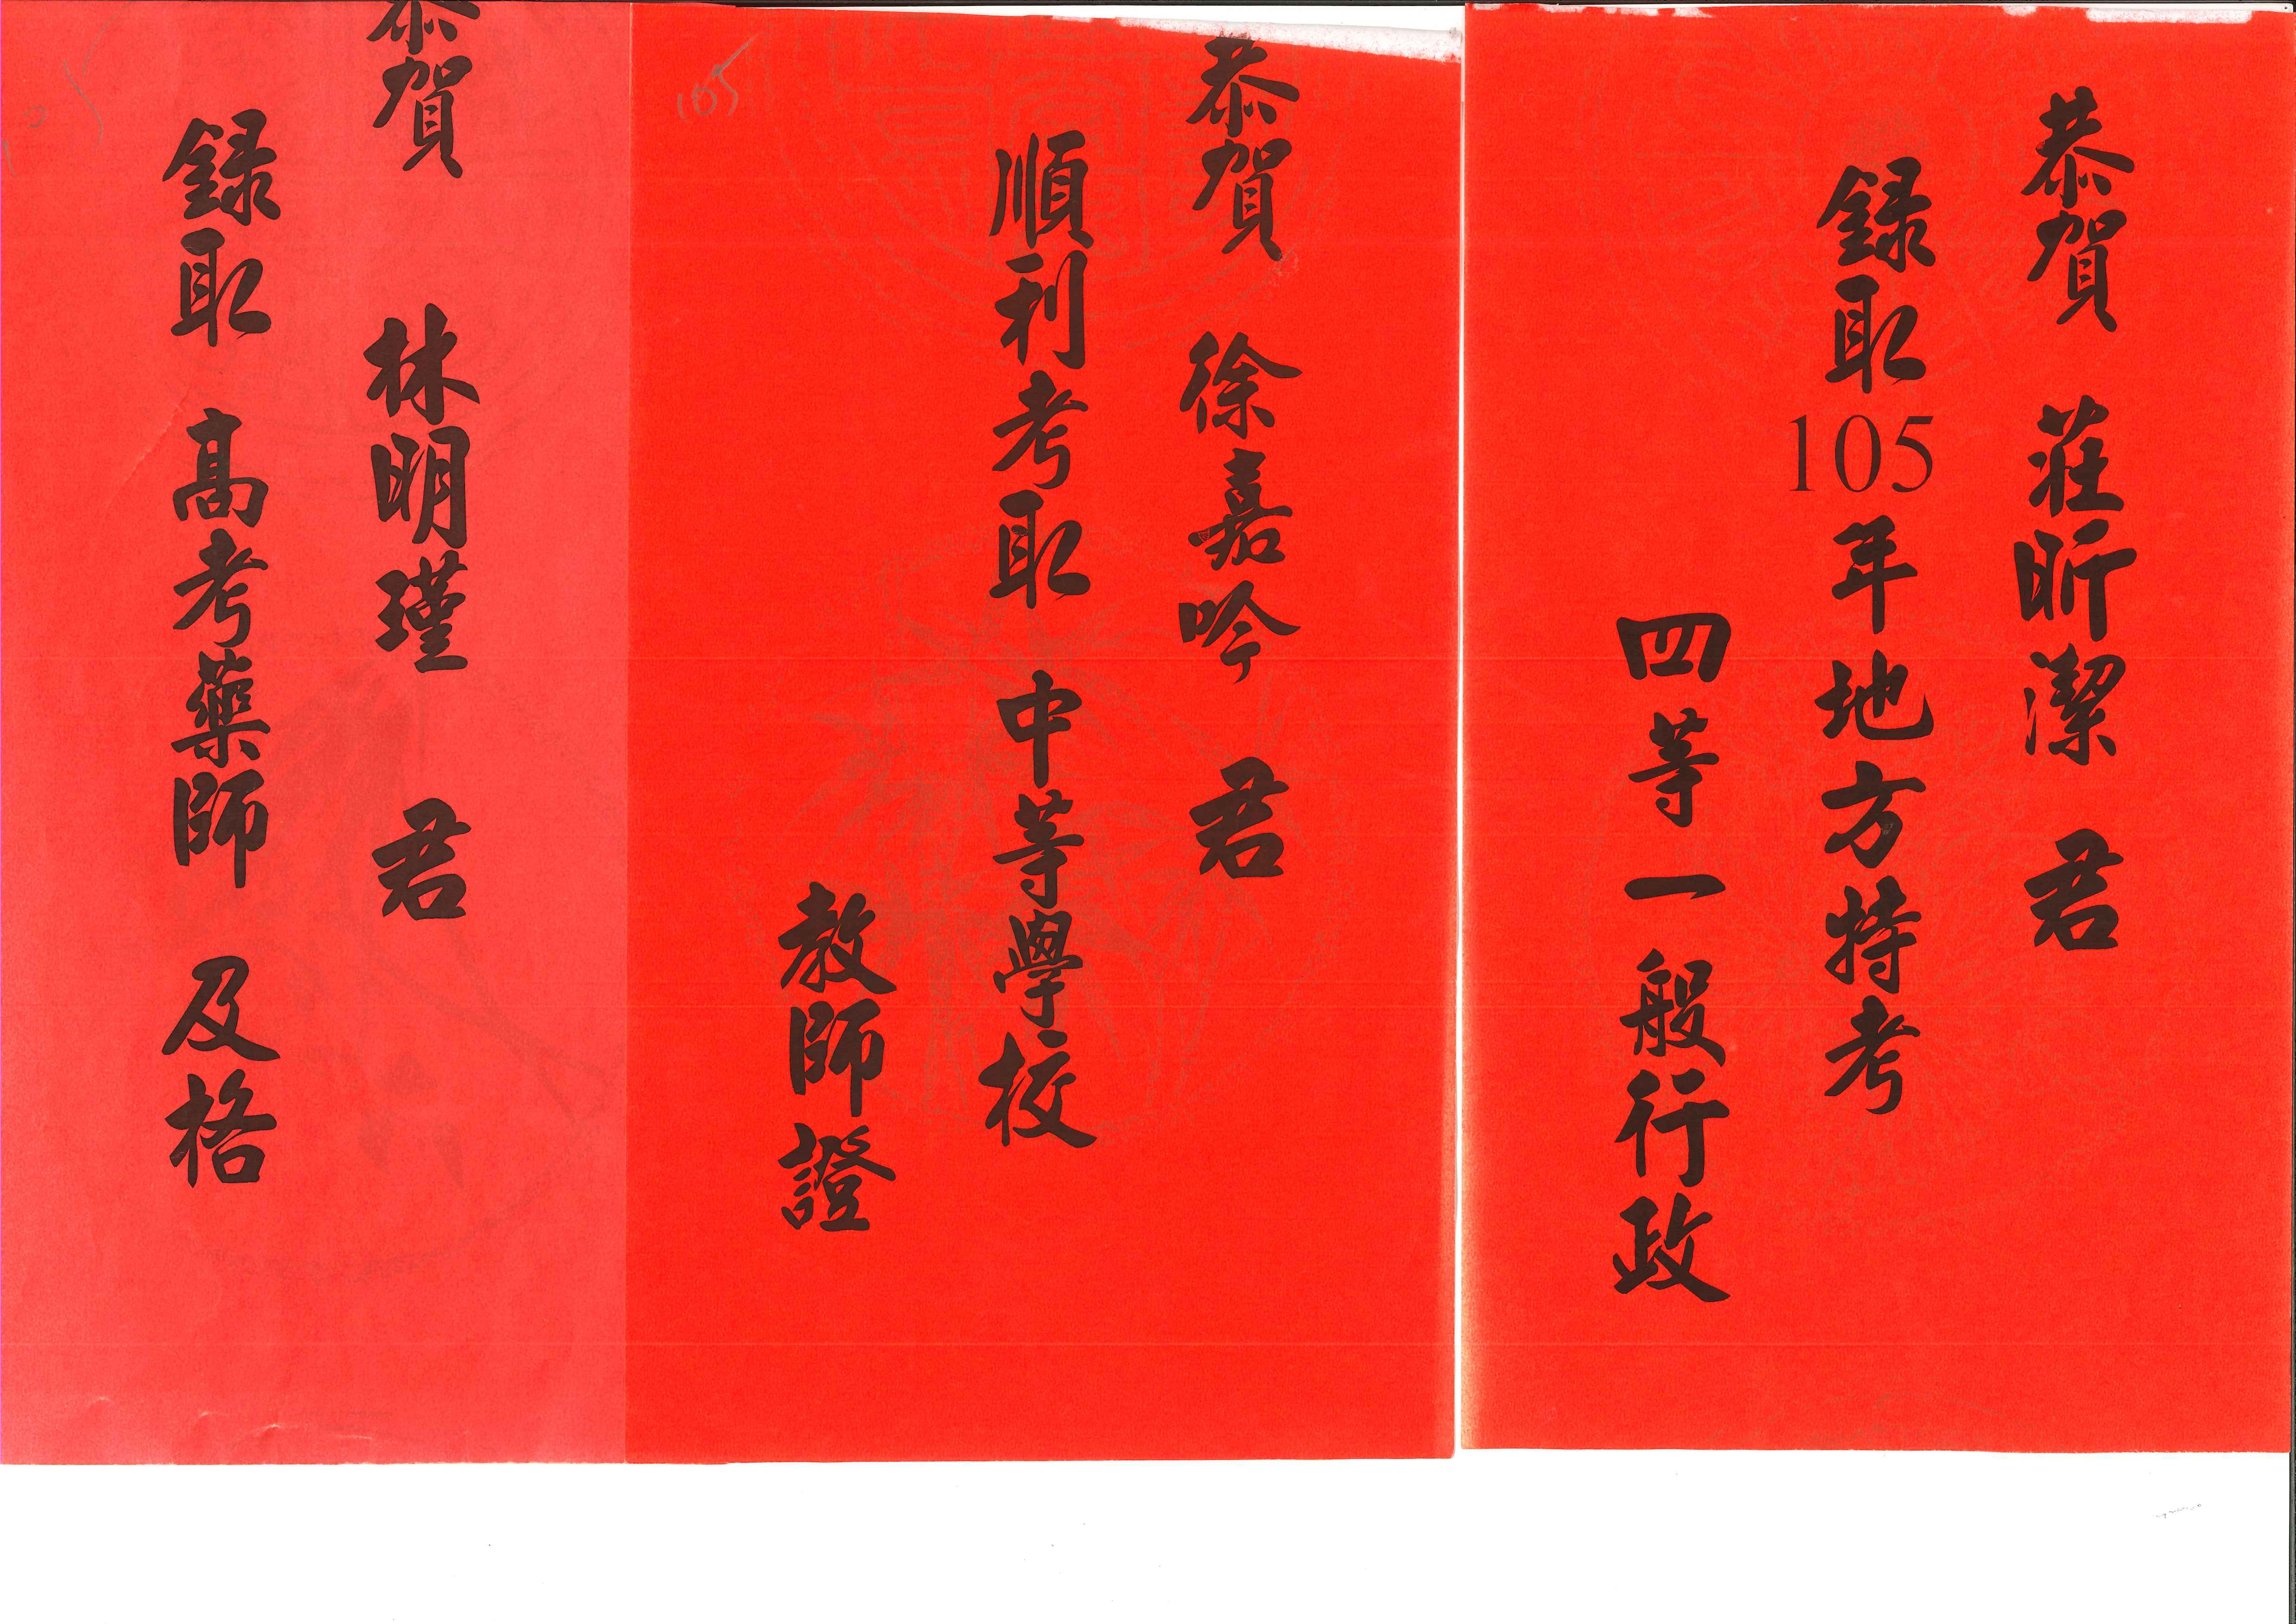 恭賀 莊昕潔 君
錄取105年地方特考
四等一般行政
105
恭賀 徐嘉吟 君
順利考取 中等學校
教師證
105
恭賀 林明瑾 君
錄取 高考藥師 及格